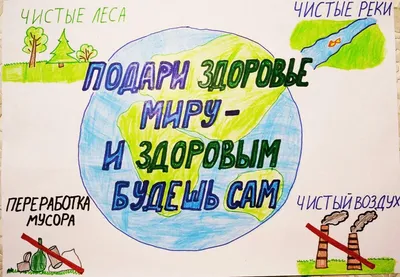 ЧИСТЫЕ ЛЕСА
ЧИСТЫЕ РЕКИ
ПОДАРИ ЗДОРОВЬЕ
МИРУ -
И ЗДОРОВЫМ
БУДЕШЬ САМ
ПЕРЕРАБОТКА
МУСОРА
ЧИСТЫЙ ВОЗДУХ